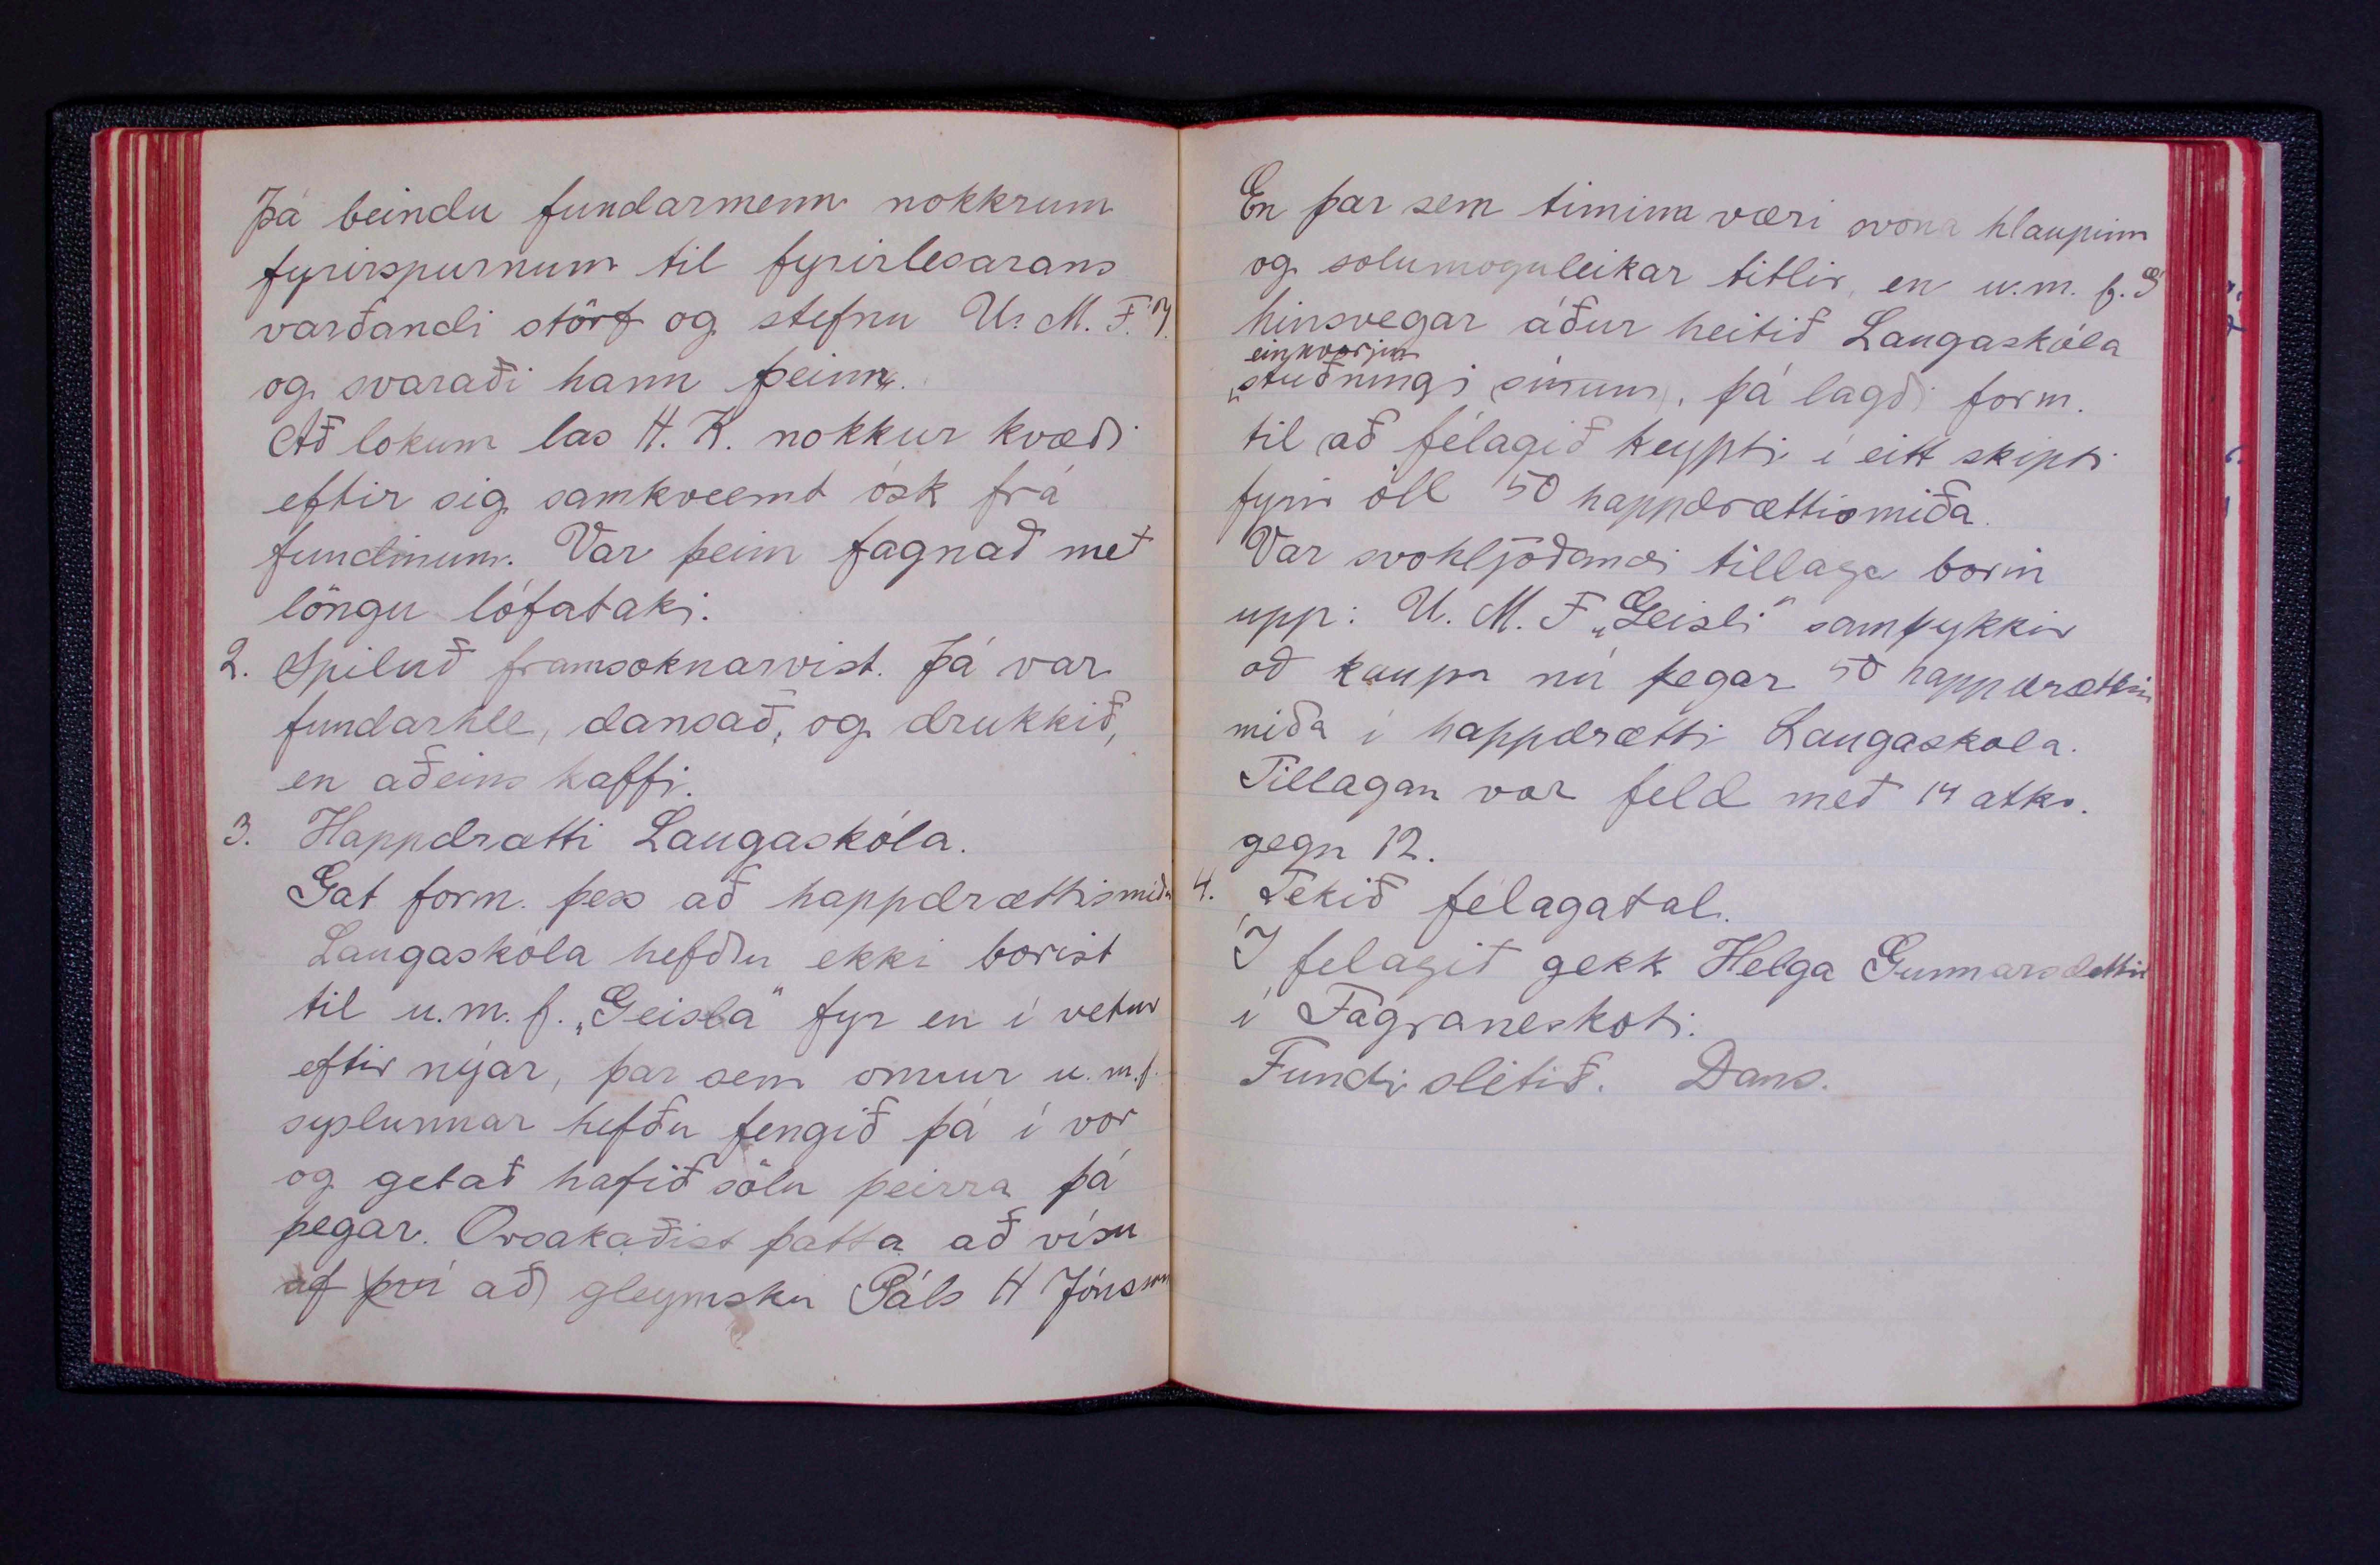 Þá beindu fundarmenn nokkrum
fyrirspurnum til fyrirlesarans
varðandi störf og stefnu U. M. F. Í.
og svaraði hann þeim.
Að lokum las H. K. nokkur kvæði
eftir sig samkvæmt ósk frá
fundinum. Var þeim fagnað með
löngu lófataki.
2. Spiluð framsoknarvist. Þá var
fundarhle, dansað, og drukkið,
en aðeins kaffi.
3. Happdrætti Laugaskóla.
Gat form. þess að happdrættismiðar
Laugaskóla hefðu ekki borist
til u.m.f. „Geisla" fyr en í vetur
eftir nýar, þar sem onnur u.m.f.
syslunnar hefðu fengið þá í vor
og getað hafið sölu þeirra þá
þegar. Orsakaðist þatta að vísu
af því að gleymsku Páls H Jónssonar
En þar sem timinn væri svona hlaupinn
og solumoguleikar litlir, en u.m.f. G
hinsvegar áður heitið Laugaskóla
einhverjum
stuðningi sínum, þá lagði form.
til að félagið keypti í eitt skipti
fyrir öll 50 happdrættismiða.
Var svohljóðandi tillaga borin
upp: U. M. F „Geisli" samþykkir
að kaupa nú þegar 50 happdrættis
miða í happdrætti Laugaskola.
Tillagan var feld með 14 atkv.
gegn 12.
4. Tekið félagatal.
Í felagið gekk Helga Gunnarsdottir
í Fagraneskoti.
Fundi slitið. Dans.